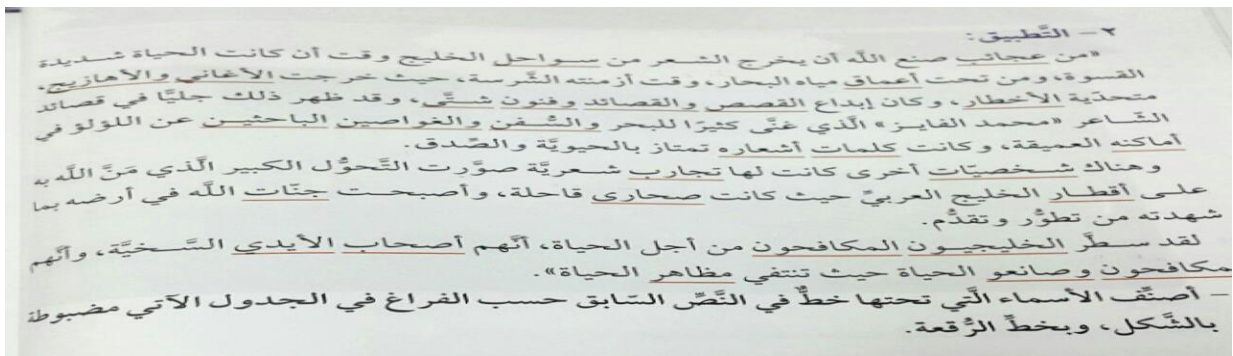 ٢ - التَّطبيق:
«من عجائب صنع الله أن يخرج الشعر من سواحل الخليج وقت أن كانت الحياة شديدة
القسوة، ومن تحت أعماق مياه البحار، وقت أزمنته الشَّرسة، حيث خرجت الأغاني والأهازيج،
متحدّية الأخطار، وكان إبداع القصص والقصائد وفنون شتَّى، وقد ظهر ذلك جليًّا في قصائد
الشّاعر «محمد الفايز» الَّذي غنَّى كثيرًا للبحر والسُّفن والغواصين الباحثين عن اللؤلؤ في
أماكنه العميقة، وكانت كلمات أشعاره تمتاز بالحيويَّة والصِّدق.
وهناك شخصيّات أخرى كانت لها تجارب شعريَّة صوَّرت التَّحوُّل الكبير الَّذي مَنَّ الله به
على أقطار الخليج العربيِّ حيث كانت صحاري قاحلة، وأصبحت جنّات الله في أرضه بما
شهدته من تطوُّر وتقدُّم.
لقد سطَّر الخليجيون المكافحون من أجل الحياة، أنَّهم أصحاب الأيدي السَّخيَّة، وأنَّهم
مكافحون وصانعو الحياة حيث تنتفي مظاهر الحياة».
– أصنِّف الأسماء الَّتي تحتها خطٌّ في النَّصِّ السّابق حسب الفراغ في الجدول الآتي مضبوطة
بالشَّكل، وبخطِّ الرُّقعة.